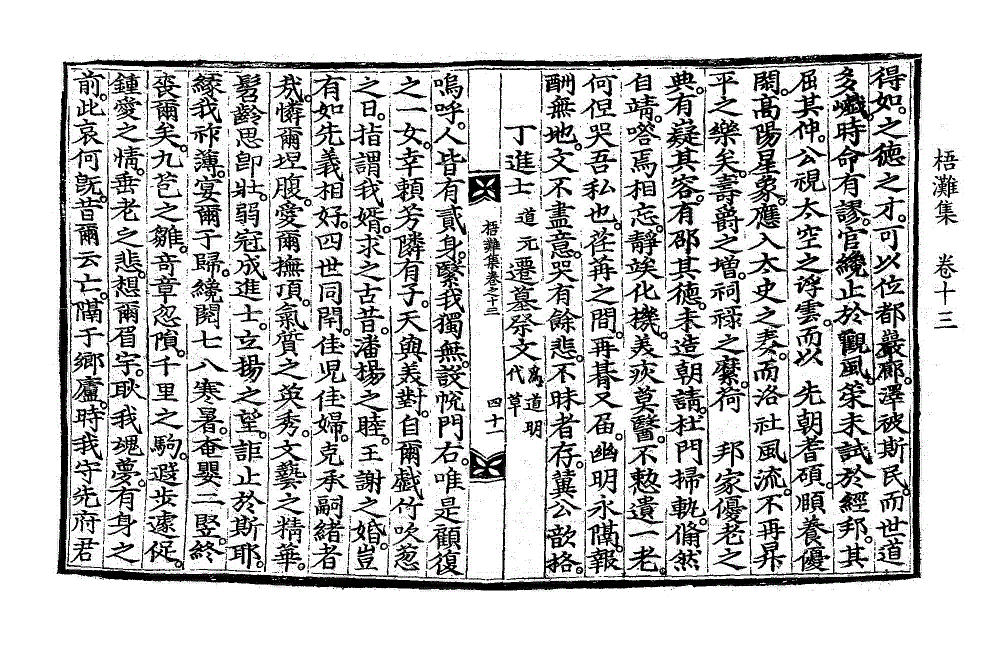 梧灘集 卷十三
得如。之德之才。可以位都嚴廊。澤被斯民。而世道
多巇。時命有謬。官纔止於觀風。策未試於經邦。其
屈其伸。公視太空之浮雲。而以 先朝耆碩。頤養優
閑。高陽星象。應入太史之奏。而洛社風流。不再昇
平之樂矣。壽爵之增。祠祿之縻。荷 邦家優老之
典。有嶷其容。有邵其德。未造朝請。杜門掃軌。翛然
自靖。嗒焉相忘。靜竢化機。美疢莫醫。不憖遺一老。
何但哭吾私也。荏苒之間。再朞又屆。幽明永隔。報
酬無地。文不盡意。哭有餘悲。不昧者存。冀公歆格。
丁進士 道元 遷墓祭文 爲道明代草
梧灘集卷之十三 四十一
嗚呼。人皆有貳身。繄我獨無。設帨門右。唯是顧復
之一女。幸賴芳隣有子。天與義對。自爾戲竹吹葱
之日。指謂我婿。求之古昔。潘揚之睦。王謝之婚。豈
有如先義相好。四世同閈。佳兒佳婦。克承嗣緖者
哉。憐爾坦腹。愛爾撫頂。氣質之英秀。文藝之精華。
髫齡思卽壯。弱冠成進士。立揚之望。詎止於斯耶。
緣我祚薄。宴爾于歸。纔閱七八寒暑。奄嬰二竪。終
喪爾矣。九苞之雛。奇章忽隕。千里之駒。遐步遽促。
鍾愛之情。垂老之悲。想爾眉宇。耿我魂夢。有身之
前。此哀何旣。昔爾云亡。隔于鄕廬。時我守先府君